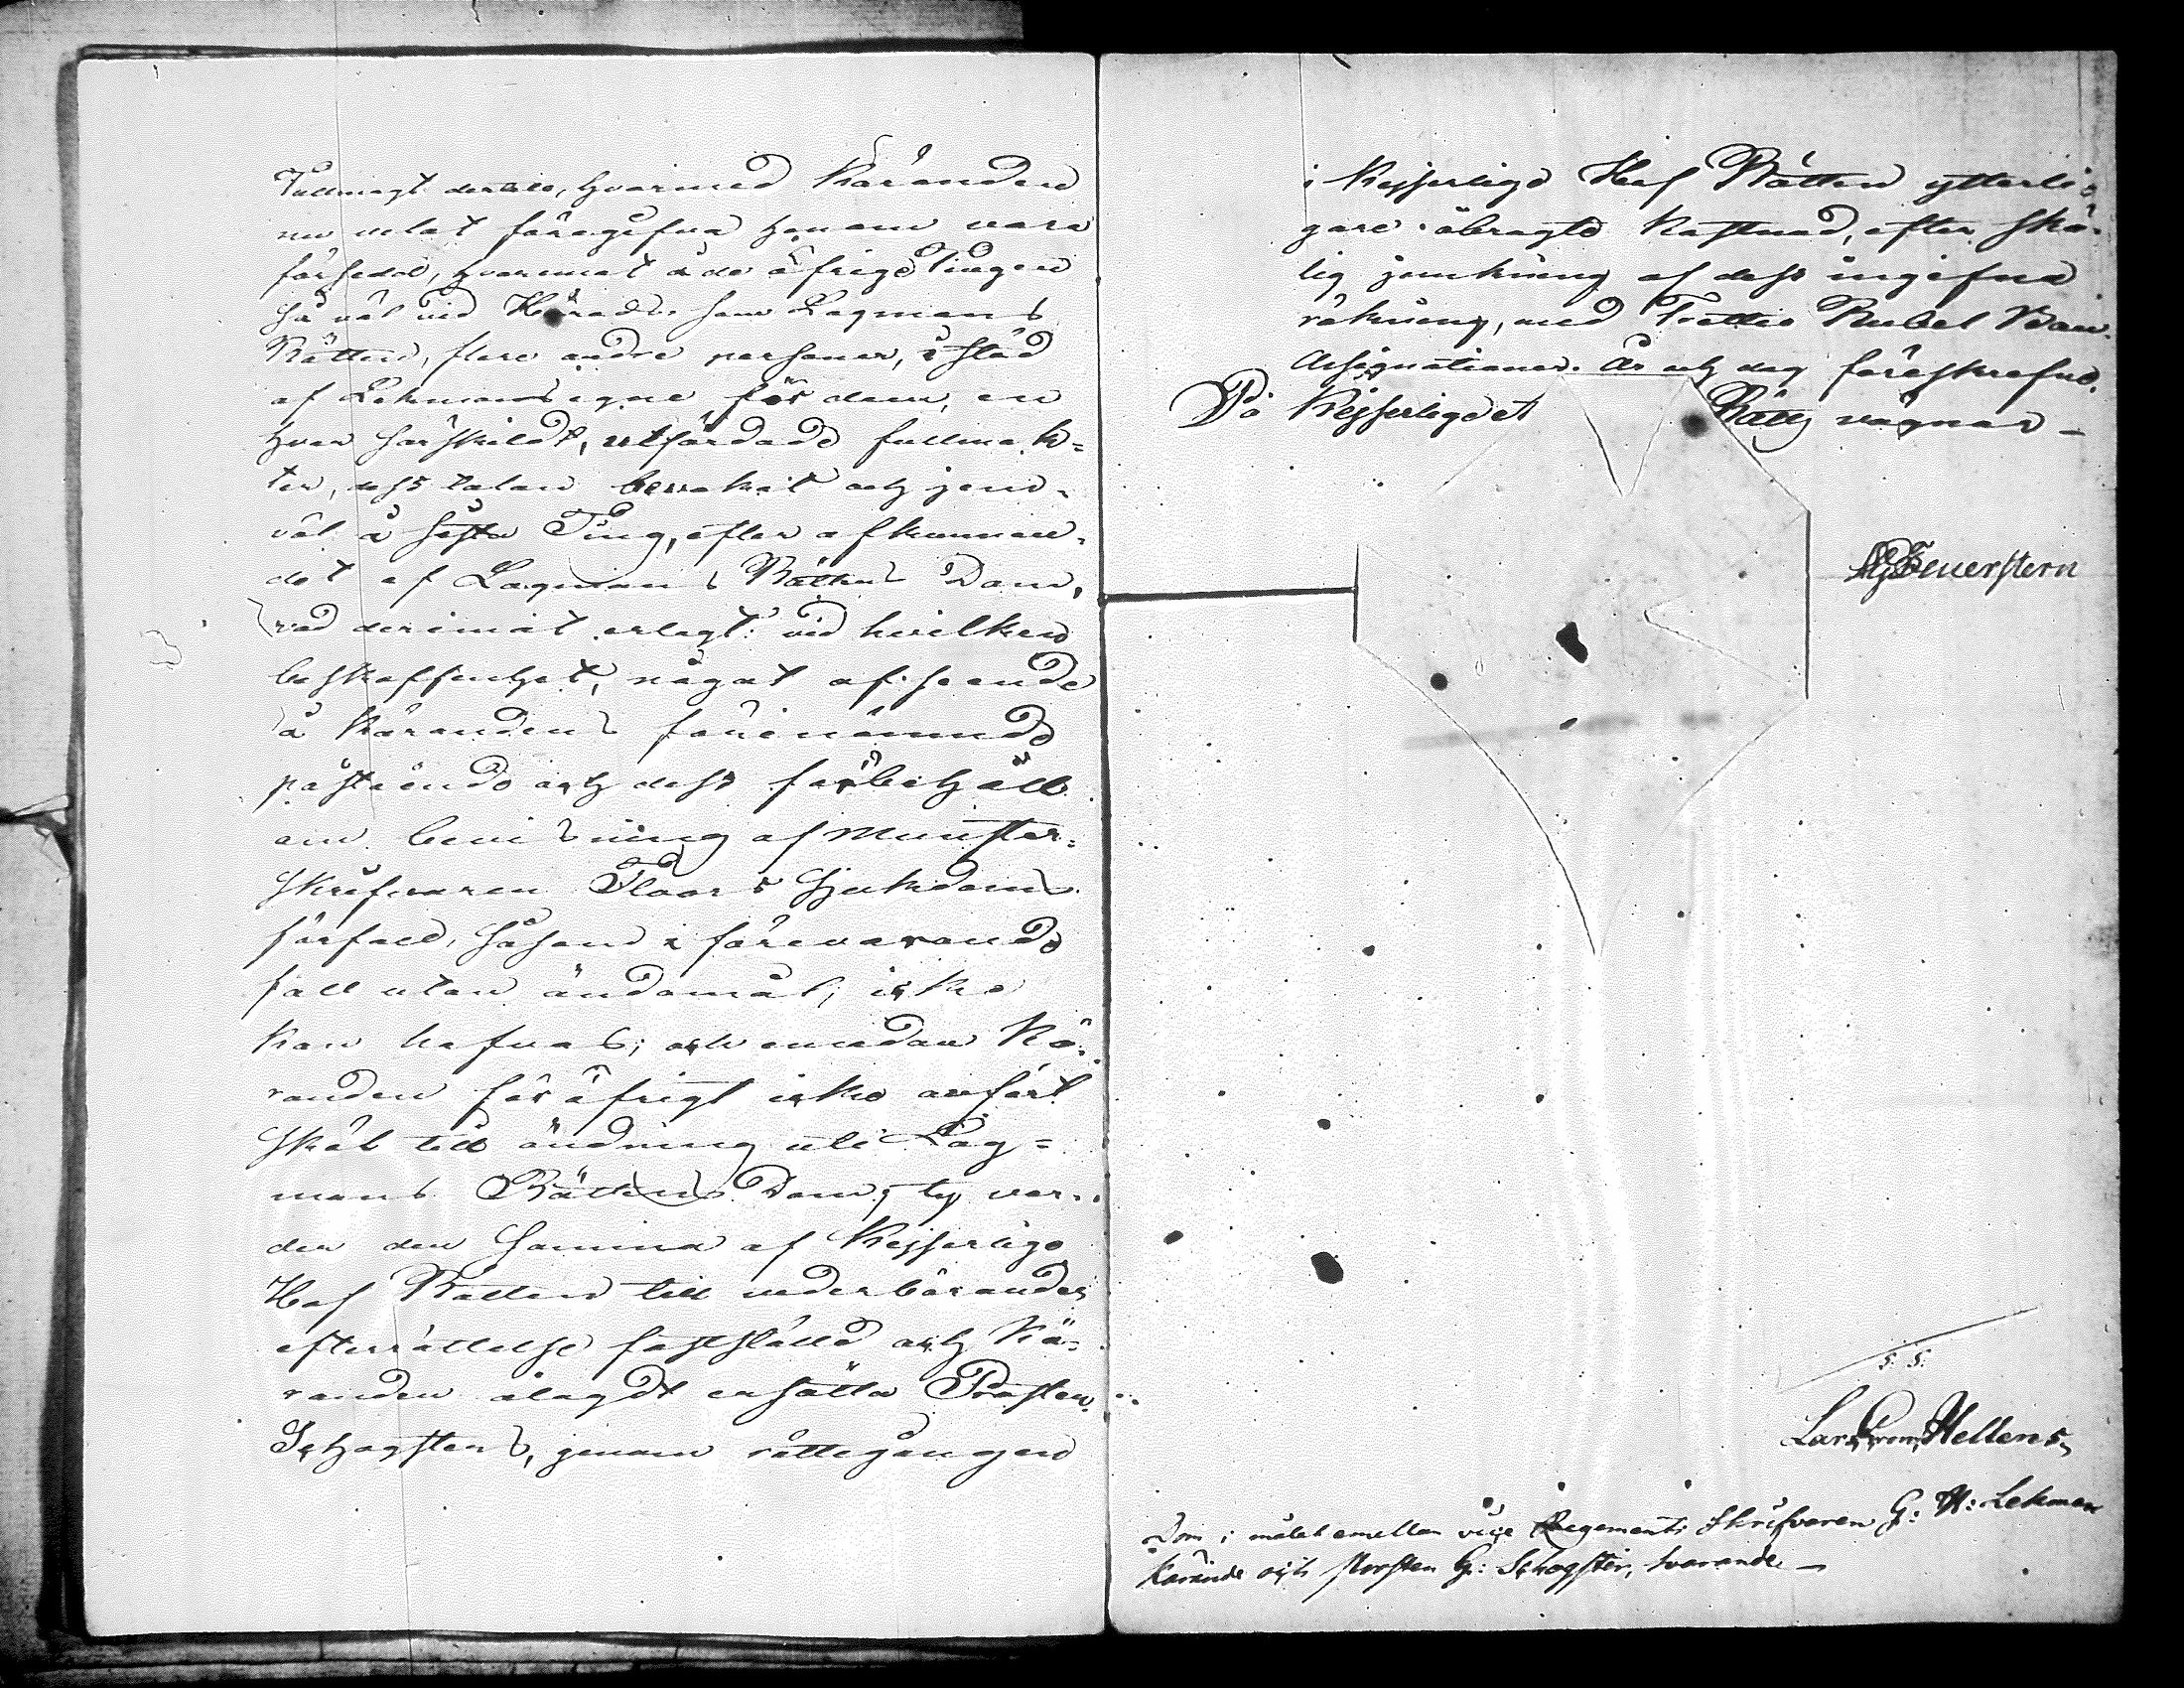 Fullmagt dertill, hvarmed Käranden
nu velat föregifva honom vara
försedd, hvaremot å de öfrige Tingen
så väl vid Härads som Lagmans
Rätten, flere andre personer, i stöd
af Lekmans egne för dem, en
hvar särskildt, utfärdade fullmak=
ter, dess talan bevakat och jem-
väl å sista Ting, efter afkunnan-
det af Lagmans Rättens Dom,
vad derimot erlagt: vid hvilken
beskaffenhet, något afseende
å Kärandens förenämnde
påstående och dess förbehåll
om bevisning af Munster-
skrifvaren Floors Sjukdoms
förfall, såsom i förevarande
fall utan ändamål, icke
kan hafvas; och emedan Kä-
randen för öfrigt icke anfört
skäl till ändring uti Lag=
mans Rättens Dom; ty var-
der den samma af Kejserlige
Hof Rätten till vederbörandes
efterrättelse fastställd och Kä-
randen ålagdt ersätta Prosten
Schogsters, genom rättegången
i Kejserlige Hof Rätten ytterli-
gare åbragte Kostnad, efter skä-
lig jemkning af dess ingifna
räkning, med Trettio Rubel Banco
Assignationer. År och dag föreskrefne.
På Kejserlige et Rätts vägnar –
Feuerstern
S. S.
Lars Hellens
Dom i målet emellan vice Regements Skrifvaren G: H: Lekman
Kärande och Prosten G: Schogster, svarande –